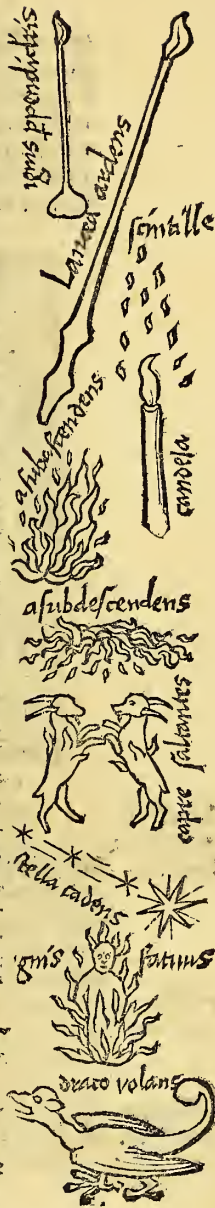 ignis
Lancea ardens
scintille
candela
asub ascendens
asubdescendens
capre saltantes
stella cadens
gnis fatuus
draco volans